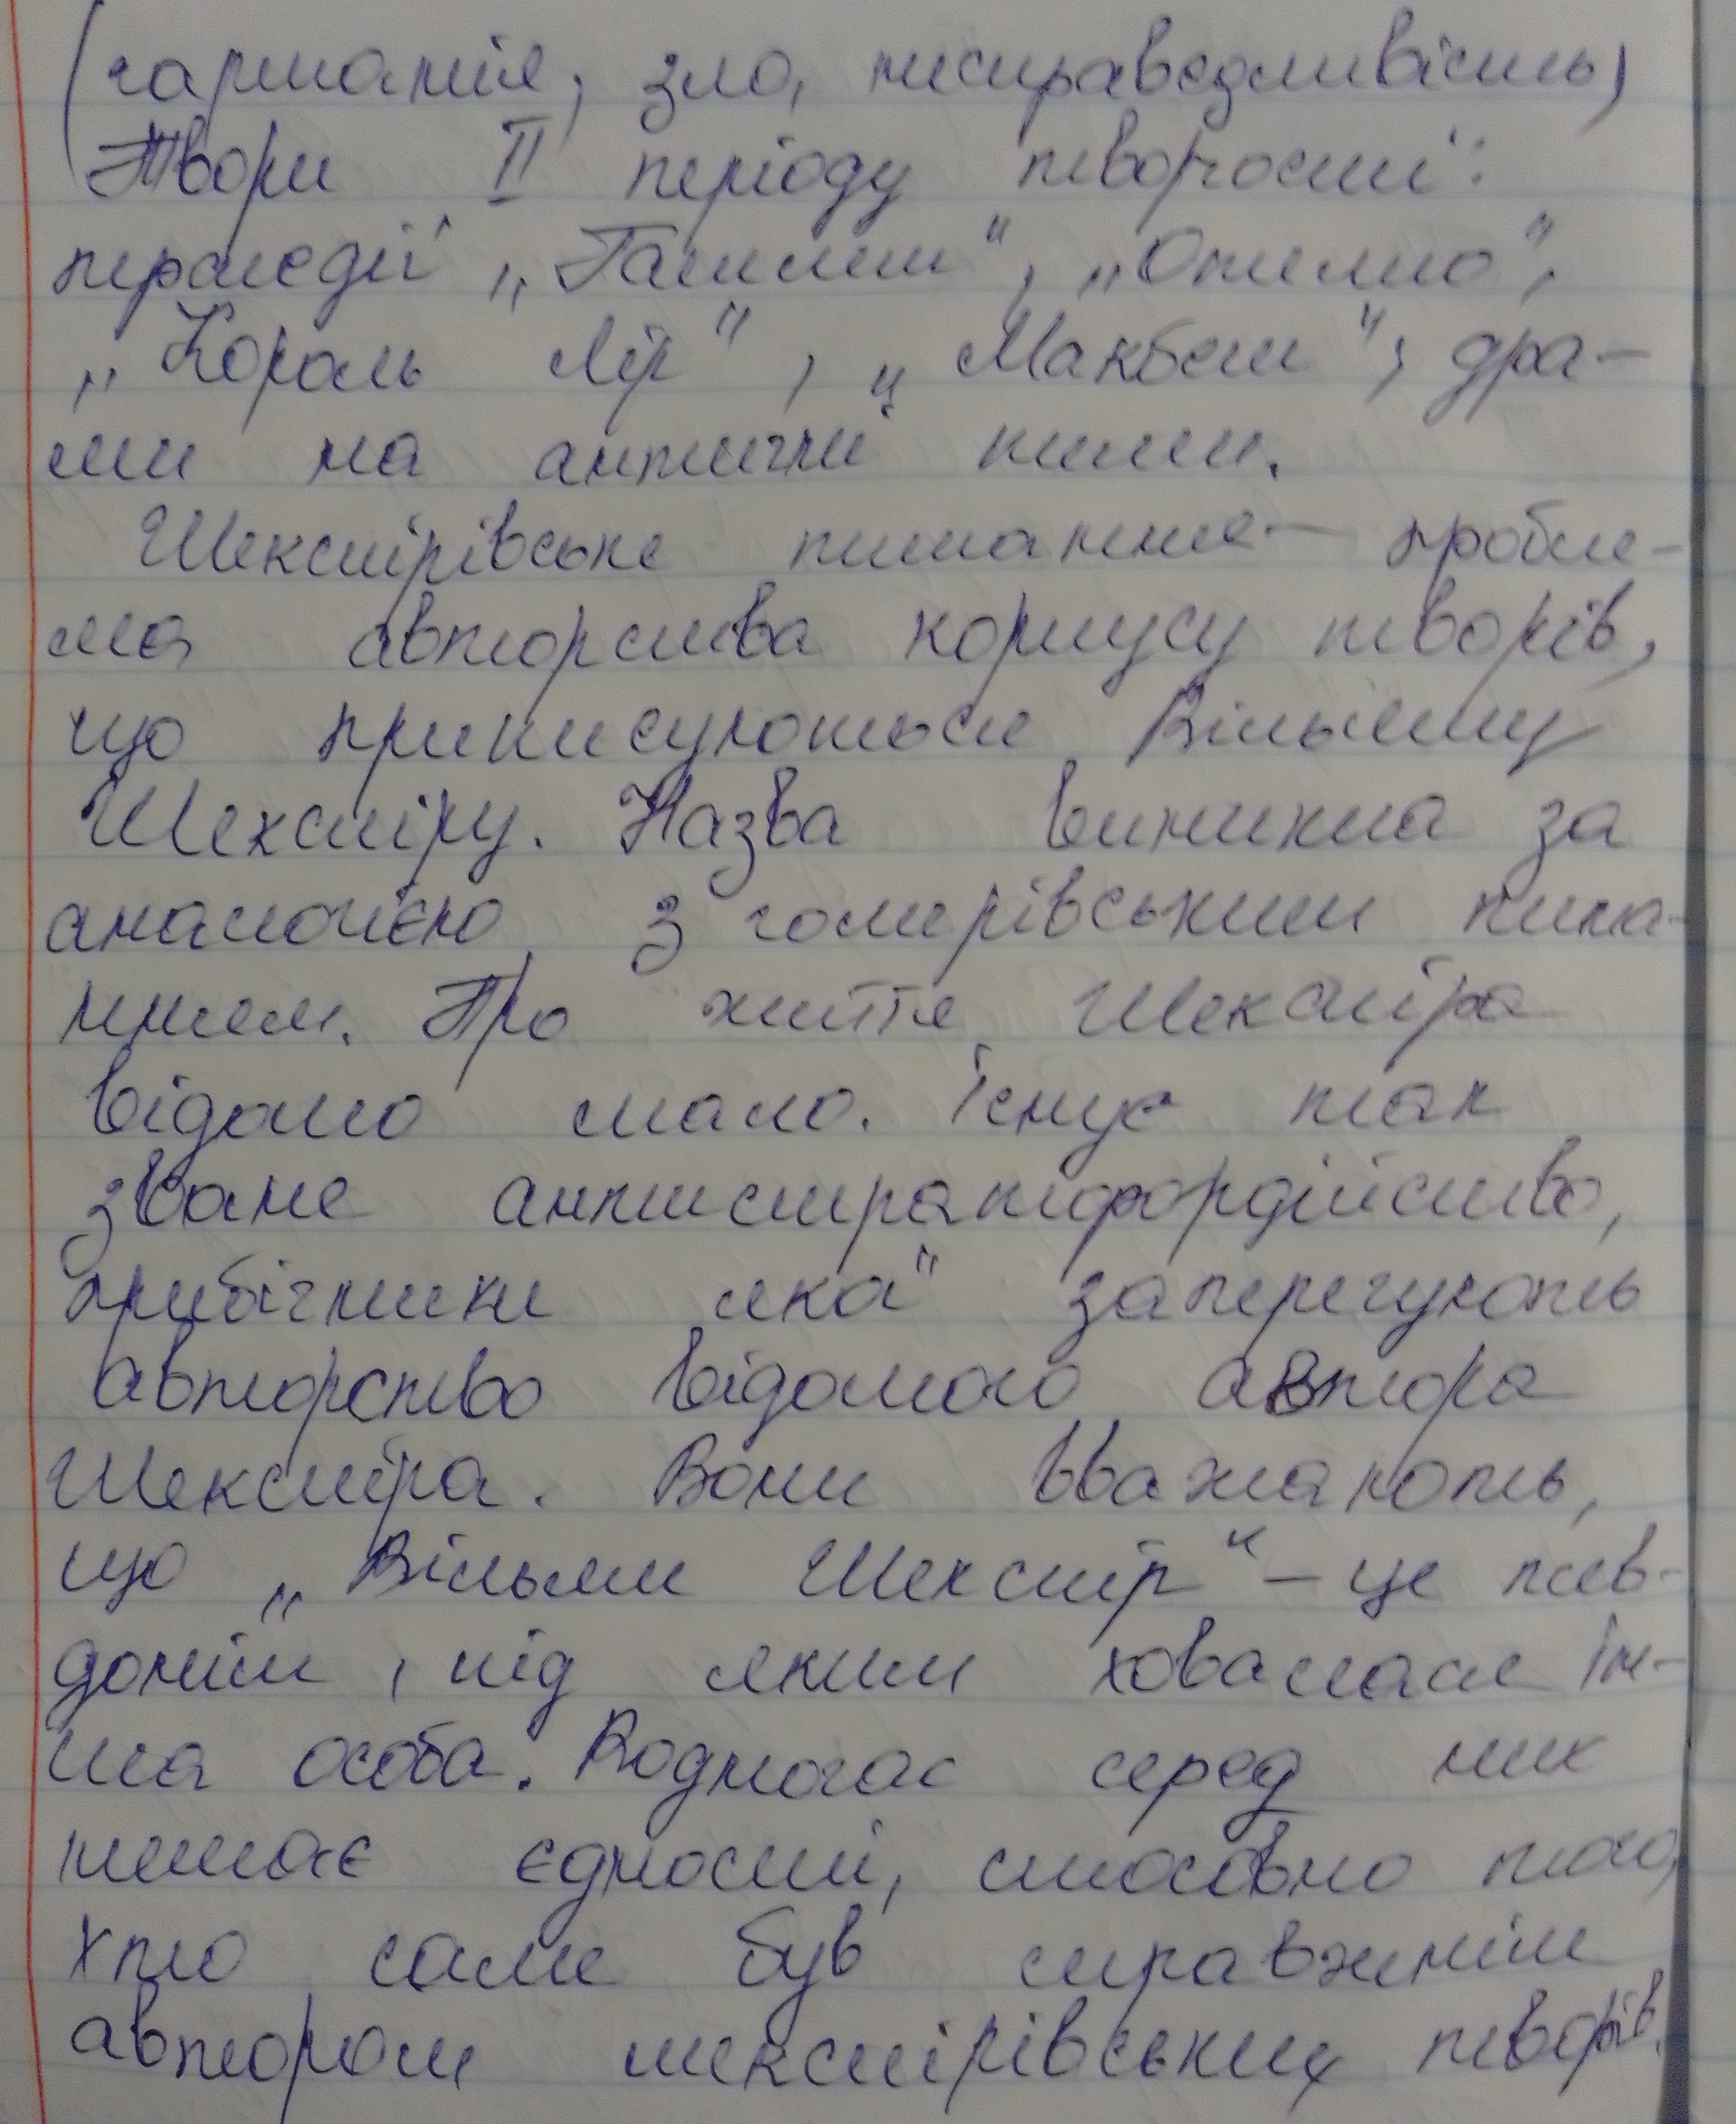 (гармонія, зло, несправедливість)
Твори II періоду творчості:
трагедії „Гамлет“, „Отелло“,
„Король Лір“, „Макбет“, дра-
ми на античні теми.
Шекспірівське питання – пробле-
ма авторства корпусу творів,
що приписуються Вільяму
Шекспіру. Назва виникла за
аналогією з гомерівським пита-
нням. Про життя Шекспіра
відомо мало. Існує так
зване антистратфордійство,
прибічники якої заперечують
авторство відомого автора
Шекспіра. Вони вважають,
що „Вільям Шекспір“ – це псев-
донім, під яким ховалася ін-
ша особа. Водночас серед них
немає єдності, стосовно того,
хто саме був справжнім
автором шекспірівських творів.